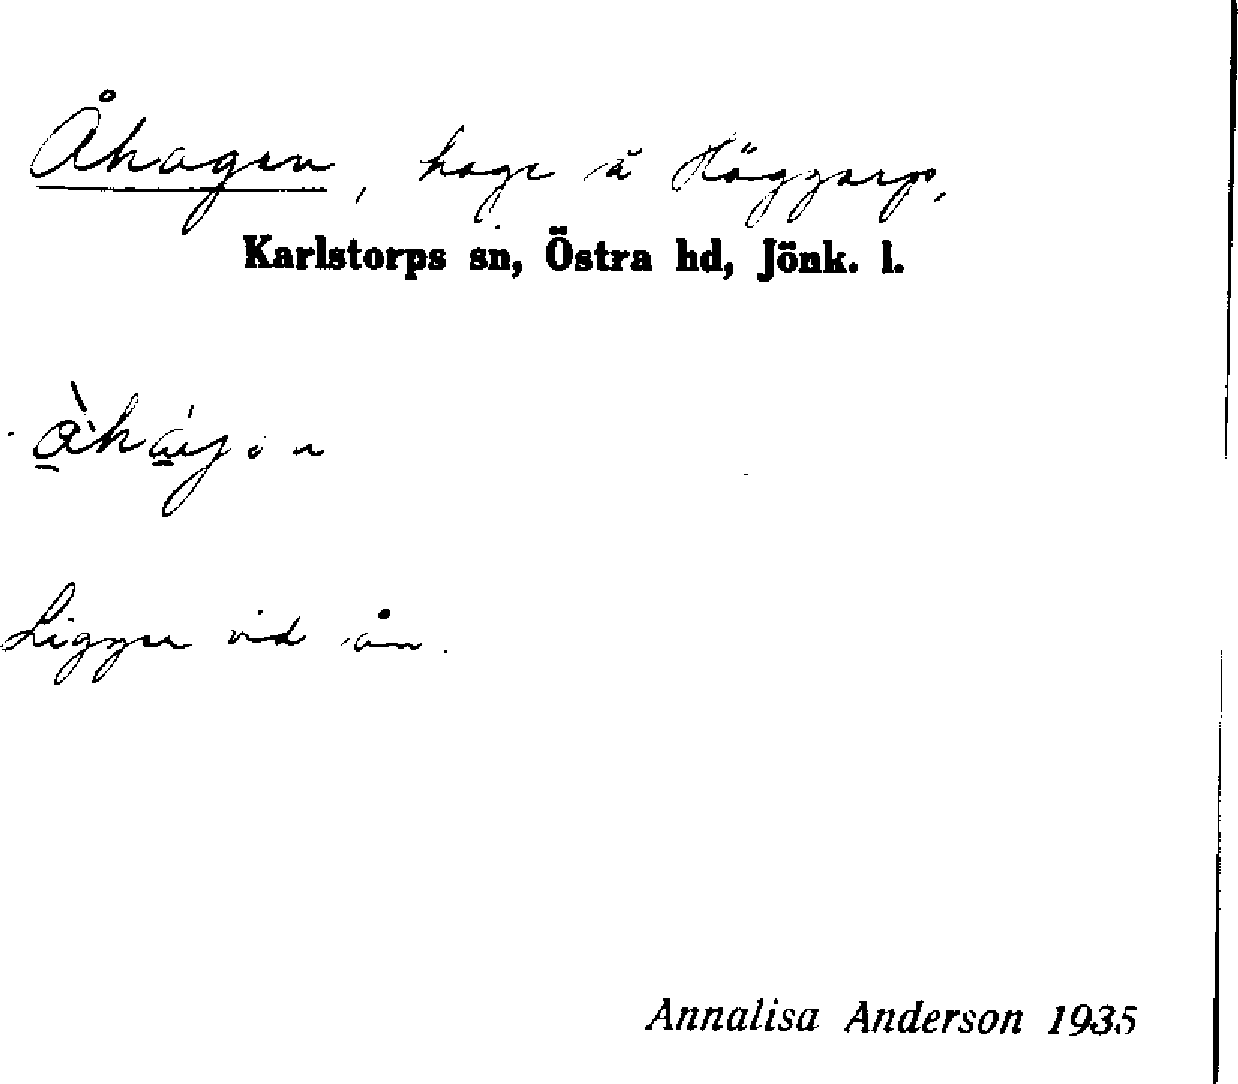 Åhagen, hage å Häggarp,
Karlstorps sn, Östra hd, Jönk. l.
Ligger vid ån.
Annalisa Anderson 1935